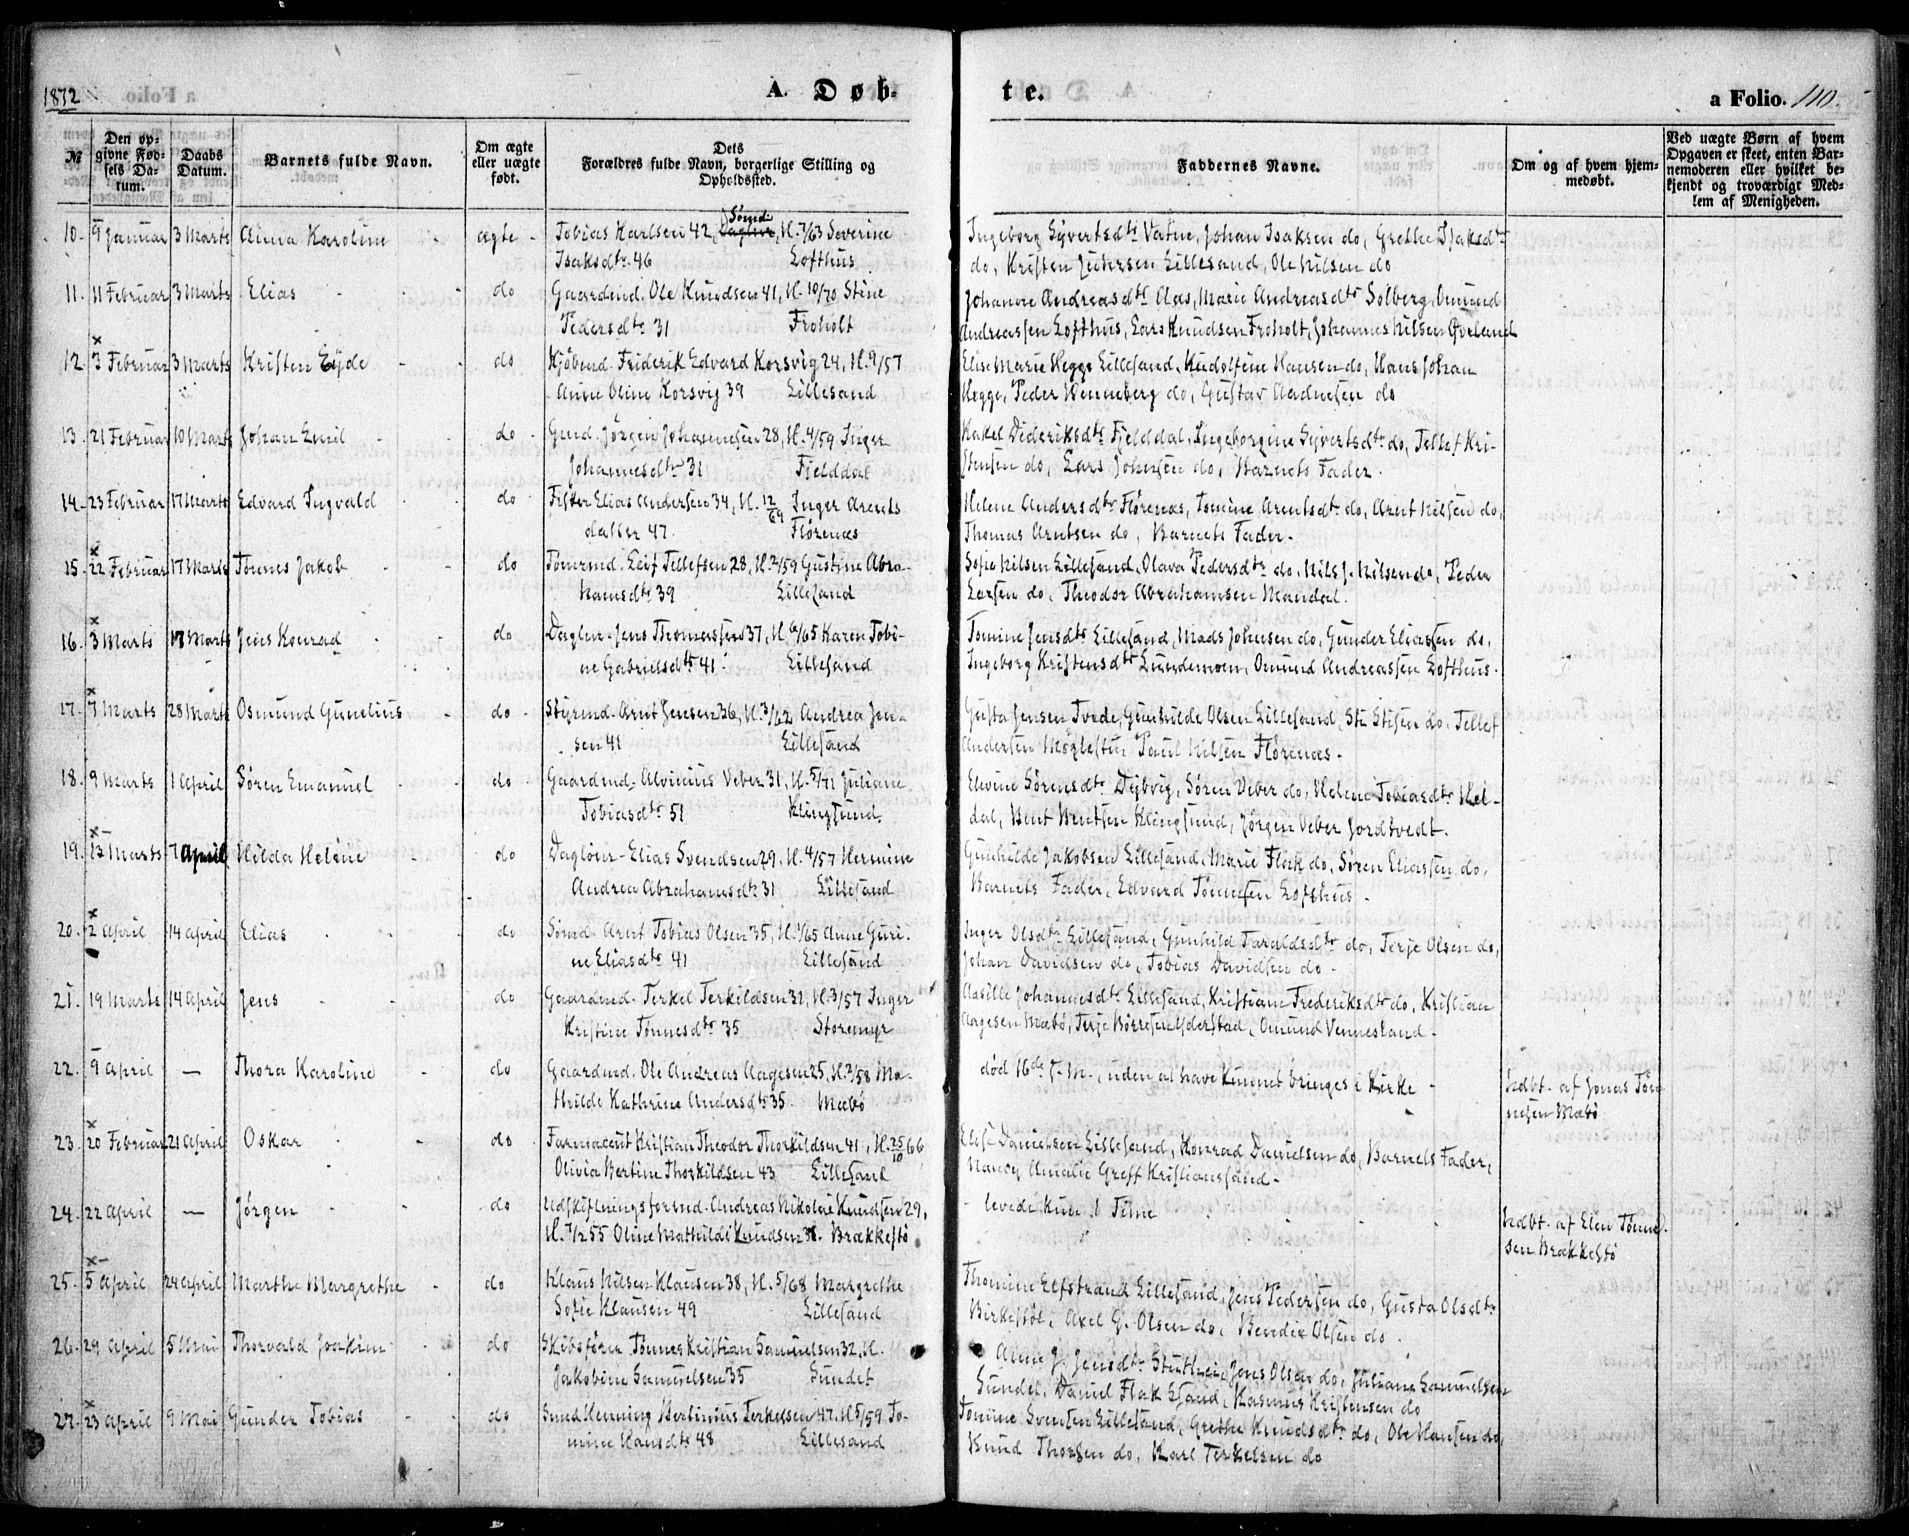 1872
A. Døb-
te.
a Folio. 110.
№
Den op-
givne Fød-
sels Da-
tum.
Daabs
Datum.
Barnets fulde Navn.
Om ægte
eller uægte
født.
Dets
Forældres fulde Navn, borgerlige Stilling og
Opholdssted.
Faddernes Navne.
Om og af hvem hjem-
medøbt.
Ved uægte Børn af hvem
Opgaven er skeet, enten Bar-
nemoderen eller hvilket be-
kjendt og troværdigt Med-
lem af Menigheden.
10. 9 Januar 3 Marts Anna Karoline ægte Tobias Karlsen 42, Sømd. Daglnr, V. 7/63 Severine
Isaksdtr 46 Lofthus
Ingeborg Syvertsdtr Vatne, Johan Isaksen do, Grethe Isaksdtr
do, Kristen Lillesand, Ole Nilsen do
11. 11 Februar 3 Marts Elias do Gaardmd. Ole Knudsen 41, V. 10/70 Stine
Pedersdtr 31 Froholt
Johanne Andreasdtr Aas, Marie Andreasdtr Solberg, Omund
Andreassen Lofthus, Lars Knudsen Froholt, Johannes Nilsen
12. x 3 Februar 3 Marts Kristen Eyde do Kjøbmd. Friderik Edvard Korsvig 24, V. 9/57
Anne Oline Korsvig 39 Lillesand
Elise Marie Hegge Lillesand, Rudolfine Hansen do, Hans Johan
Hegge, Peder Wenneberg do, Gustav Aadnesen do
13. 21 Februar 10 Marts Johan Emil do Gmd. Jørgen Johannesen 28, V. 4/59 Inger
Johannesdtr 31 Fjelddal
Rakel Dideriksdtr Fjelddal, Ingeborgine Syvertsdtr do, Tellef Kri-
stensen do, Lars Johnsen do, Barnets Fader.
14. 23 Februar 17 Marts Edvard Ingvald do Fisker Elias Andersen 34, V. 12/69 Inger Arents
datter 47. Flørenæs
Helene Andersdtr Flørenæs, Tomine Arentsdtr do, Arent Nilsen do,
Thomas Arntsen do, Barnets Fader.
15. x 22 Februar 17 Marts Tønnes Jakob do Tømrmd. Leif Tellefsen 28, V. 2/59 Gustine Abra-
hamsdtr 39 Lillesand
Sofie Nilsen Lillesand, Olava Pedersdtr do, Nils J. Nilsen do, Peder
Larsen do, Theodor Abrahamsen Mandal.
16. x 3 Marts 17 Marts Jens Konrad do Daglnr. Jens Thomassen 37, V. 6/65 Karen Tobi-
ne Gabrielsdtr 41. Lillesand
Tomine Jensdtr Lillesand, Mads Johnsen do, Gunder Eliassen do,
Ingeborg Kristensdtr Lundemoen, Omund Andreassen Lofthus.
17. x 7 Marts 28 Marts Osmund Gunelius do Styrmd. Arnt Jensen 36, V. 3/62 Andrea Jen-
sen 41 Lillesand
Gusta Jensen Tvede, Gunhilde Olsen Lillesand, Sti Stisen do, Tellef
Andersen Møglestue, Paul Nilsen Flørenæs.
18. 9 Marts 1 April Søren Emanuel do Gaardmd. Alvinius Veber 31, V. 5/71 Juliane
Tobiasdtr 51 Klingsund.
Elevine Sørensdtr Dybvig, Søren Veber do, Helene Tobiasdtr Hel-
dal, Bent Bentsen Klingsund, Jørgen Veber Jordtvedt.
19. x 13 Marts 7 April Hilda Heléne do Daglønr. Elias Svendsen 29, V. 4/57 Hermine
Andrea Abrahamsdtr 31 Lillesand
Gunhilde Jakobsen Lillesand, Marie Flak do, Søren Eliassen do,
Barnets Fader, Edvard Tønnesen Lofthus.
20. x 2 April 14 April Elias do Sømd. Arnt Tobias Olsen 35, V. 1/65 Anne Guri-
ne Eliasdtr 41 Lillesand
Inger Olsdtr Lillesand, Gunhild Taraldsdtr do, Terje Olsen do,
Johan Davidsen do, Tobias Davidsen do.
21. 19 Marts 14 April Jens do Gaardmd. Terkel Terkildsen 31, V. 3/57 Inger
Kristine Tønnesdtr 35 Storemyr
Aasille Johannesdtr Lillesand, Kristiane Frederiksdtr do, Kristian
Aagesen Mæbø, Terje Børresen Ytterstad, Omund Vennesland.
22. 9 April — Thora Karoline do Gaardmd. Ole Andreas Aagesen 25, V. 2/58 Ma-
thilde Kathrine Andersdtr 35. Mæbø
død 16de s. M., uden at have kunnet bringes i Kirke
Hdbt. af Jonas Tøn-
nesen Mæbø
23. x 20 Februar 21 April Oskar do Farmaceut Kristian Theodor Thorkildsen 41, V. 25/10 66
Olivia Bertine Thorkildsen 43 Lillesand
Danielsen Lillesand, Konrad Danielsen do, Barnets Fader,
Nancy Amalie Greff Kristianssand.
24. 22 April — Jørgen do Udskiftningsformd. Andreas Nikolai Knudsen 29,
V. 7/2 55 Oline Mathilde Knudsen 38. Brækkestø
levede kun 1 Time
Hdbt. af Elen Tønne-
sen Brækkestø
25. x 5 April 24 April Marthe Margrethe do Klaus Nilsen Klausen 38, V. 5/68 Margrethe
Sofie Klausen 49 Lillesand
Thomine Elfstrand Lillesand, Jens Pedersen do, Gusta Olsdtr
Birkestøl, Axel G. Olsen do, Bendix Olsen do.
26. 29 April 5 Mai Thorvald Joakim do Skibsfører Tønnes Kristian Samuelsen 32, V.
Jakobine Samuelsen 35 Sundet
Anne J. Jensdtr Jens Olsen do, Juliane Samuelsen
Sundet, Daniel Flak Lsand, Rasmus Kristensen do
27. x 23 April 9 Mai Gunder Tobias do Smed Henning Bertinius Terkelsen 47, V. 5/59 To-
mine Hansdtr 48 Lillesand
Tomine Svensen Lillesand, Grethe Knudsdtr do, Ole Hansen do,
Knud Thorsen do, Karl Terkelsen do